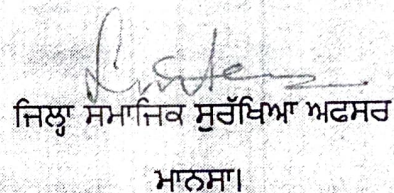 ਜਿਲ੍ਹਾ ਸਮਾਜਿਕ ਸੁਰੱਖਿਆ ਅਫਸਰ
ਮਾਨਸਾ।